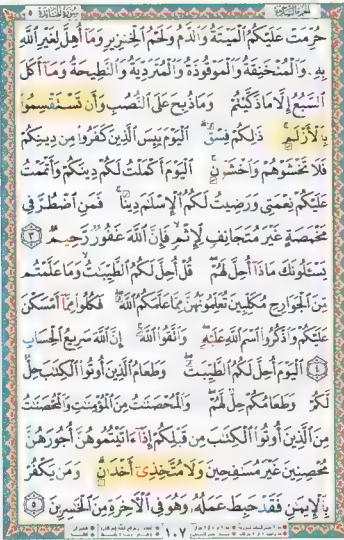 حُرِّمَتْ عَلَيْكُمُ ٱلْمَيْتَةُ وَٱلدَّمُ وَلَحْمُ ٱلْخِنزِيرِ وَمَآ أُهِلَّ لِغَيْرِ ٱللَّهِ
بِهِۦ وَٱلْمُنْخَنِقَةُ وَٱلْمَوْقُوذَةُ وَٱلْمُتَرَدِّيَةُ وَٱلنَّطِيحَةُ وَمَآ أَكَلَ
ٱلسَّبُعُ إِلَّا مَا ذَكَّيْتُمْ وَمَا ذُبِحَ عَلَى ٱلنُّصُبِ وَأَن تَسْتَقْسِمُوا۟
بِٱلْأَزْلَـٰمِ ۚ ذَٰلِكُمْ فِسْقٌ ۗ ٱلْيَوْمَ يَئِسَ ٱلَّذِينَ كَفَرُوا۟ مِن دِينِكُمْ
فَلَا تَخْشَوْهُمْ وَٱخْشَوْنِ ۚ ٱلْيَوْمَ أَكْمَلْتُ لَكُمْ دِينَكُمْ وَأَتْمَمْتُ
عَلَيْكُمْ نِعْمَتِى وَرَضِيتُ لَكُمُ ٱلْإِسْلَـٰمَ دِينًا ۚ فَمَنِ ٱضْطُرَّ فِى
مَخْمَصَةٍ غَيْرَ مُتَجَانِفٍ لِّإِثْمٍ ۙ فَإِنَّ ٱللَّهَ غَفُورٌ رَّحِيمٌ ٣
يَسْـَٔلُونَكَ مَاذَآ أُحِلَّ لَهُمْ ۖ قُلْ أُحِلَّ لَكُمُ ٱلطَّيِّبَـٰتُ ۙ وَمَا عَلَّمْتُم
مِّنَ ٱلْجَوَارِحِ مُكَلِّبِينَ تُعَلِّمُونَهُنَّ مِمَّا عَلَّمَكُمُ ٱللَّهُ ۖ فَكُلُوا۟ مِمَّآ أَمْسَكْنَ
عَلَيْكُمْ وَٱذْكُرُوا۟ ٱسْمَ ٱللَّهِ عَلَيْهِ ۖ وَٱتَّقُوا۟ ٱللَّهَ ۚ إِنَّ ٱللَّهَ سَرِيعُ ٱلْحِسَابِ
٤ ٱلْيَوْمَ أُحِلَّ لَكُمُ ٱلطَّيِّبَـٰتُ ۖ وَطَعَامُ ٱلَّذِينَ أُوتُوا۟ ٱلْكِتَـٰبَ حِلٌّ
لَّكُمْ وَطَعَامُكُمْ حِلٌّ لَّهُمْ ۖ وَٱلْمُحْصَنَـٰتُ مِنَ ٱلْمُؤْمِنَـٰتِ وَٱلْمُحْصَنَـٰتُ
مِنَ ٱلَّذِينَ أُوتُوا۟ ٱلْكِتَـٰبَ مِن قَبْلِكُمْ إِذَآ ءَاتَيْتُمُوهُنَّ أُجُورَهُنَّ
مُحْصِنِينَ غَيْرَ مُسَـٰفِحِينَ وَلَا مُتَّخِذِىٓ أَخْدَانٍ ۗ وَمَن يَكْفُرْ
بِٱلْإِيمَـٰنِ فَقَدْ حَبِطَ عَمَلُهُۥ وَهُوَ فِى ٱلْـَٔاخِرَةِ مِنَ ٱلْخَـٰسِرِينَ ٥
١٠٧